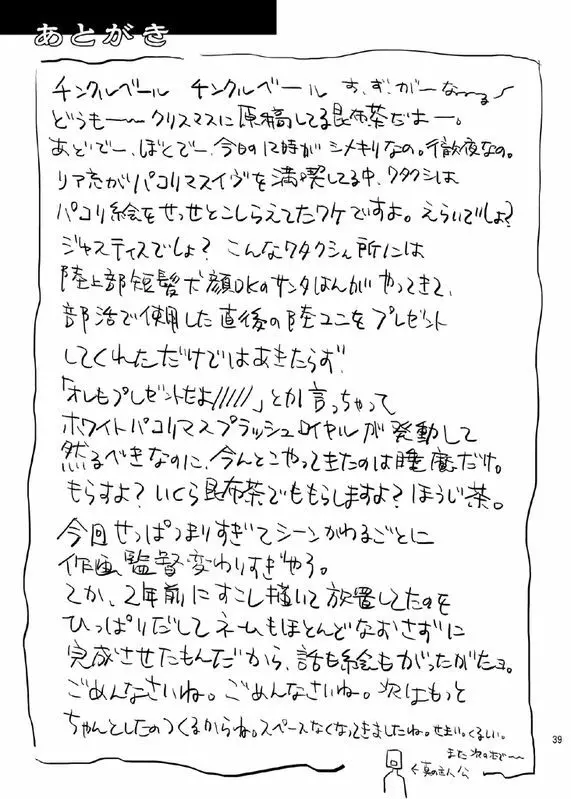 あとがき
チンクルベール チンクルベール す、ず、がーなーーる
どうもーー クリスマスに原稿してる昆布茶だよー。
あどでー、ぼくでー、今日の12時がシメキリなの。行徹夜なの。
リア充がパコリマスイヴを満喫してる中、ワタクシは
パコリ絵をせっせとこしらえてたワケですよ。えらいでしょ?
ジャスティスでしょ? こんなワタクシん所には
陸上部短髪犬顔DKのサンタはんがやってきて、
部活で使用した直後の陸ユニをプレゼント
してくれただけではあきたらず、
「オレもプレゼントだよ/////」とか言っちゃって
ホワイトパコリマスプラッシュロイヤルが発動して
然るべきなのに、今んとこやってきたのは睡魔だけ。
もらすよ? いくら昆布茶でももらしますよ? ほうじ茶。
今回せっぱつまりすぎてシーンかわるごとに
作画監督変わりすぎやろ。
てか、2年前にすこし描いて放置してたのを
ひっぱりだしてネームもほとんどなおさずに
完成させたもんだから、話も絵もがったがたョ。
ごめんなさいね。ごめんなさいね。次はもっと
ちゃんとしたのつくるからね。スペースなくなってきましたね。せまい。くるしい。
また次の本で〜〜
←真の主人公
39